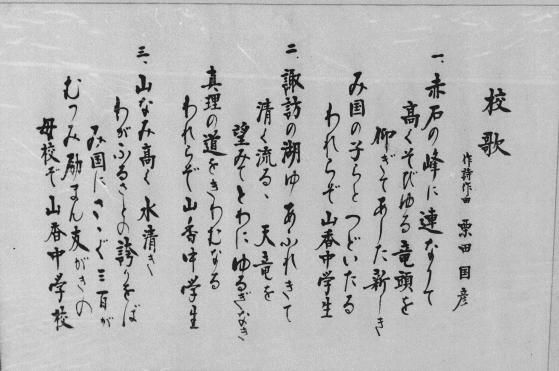 校歌
作詩作曲 栗田国彦
一、赤石の峰に連なりて
高くそびゆる竜頭を
仰ぎてあした新しき
み国の子らとつどいたる
われらぞ山香中学生
二、諏訪の湖ゆあふれきて
清く流るゝ天竜を
望みてとわにゆるぎなき
真理の道をきわむなる
われらぞ山香中学生
三、山なみ高く水清き
わがふるさとの誇りをば
み国にさゝぐ三百が
むつみ励まん友がきの
母校ぞ山香中学校